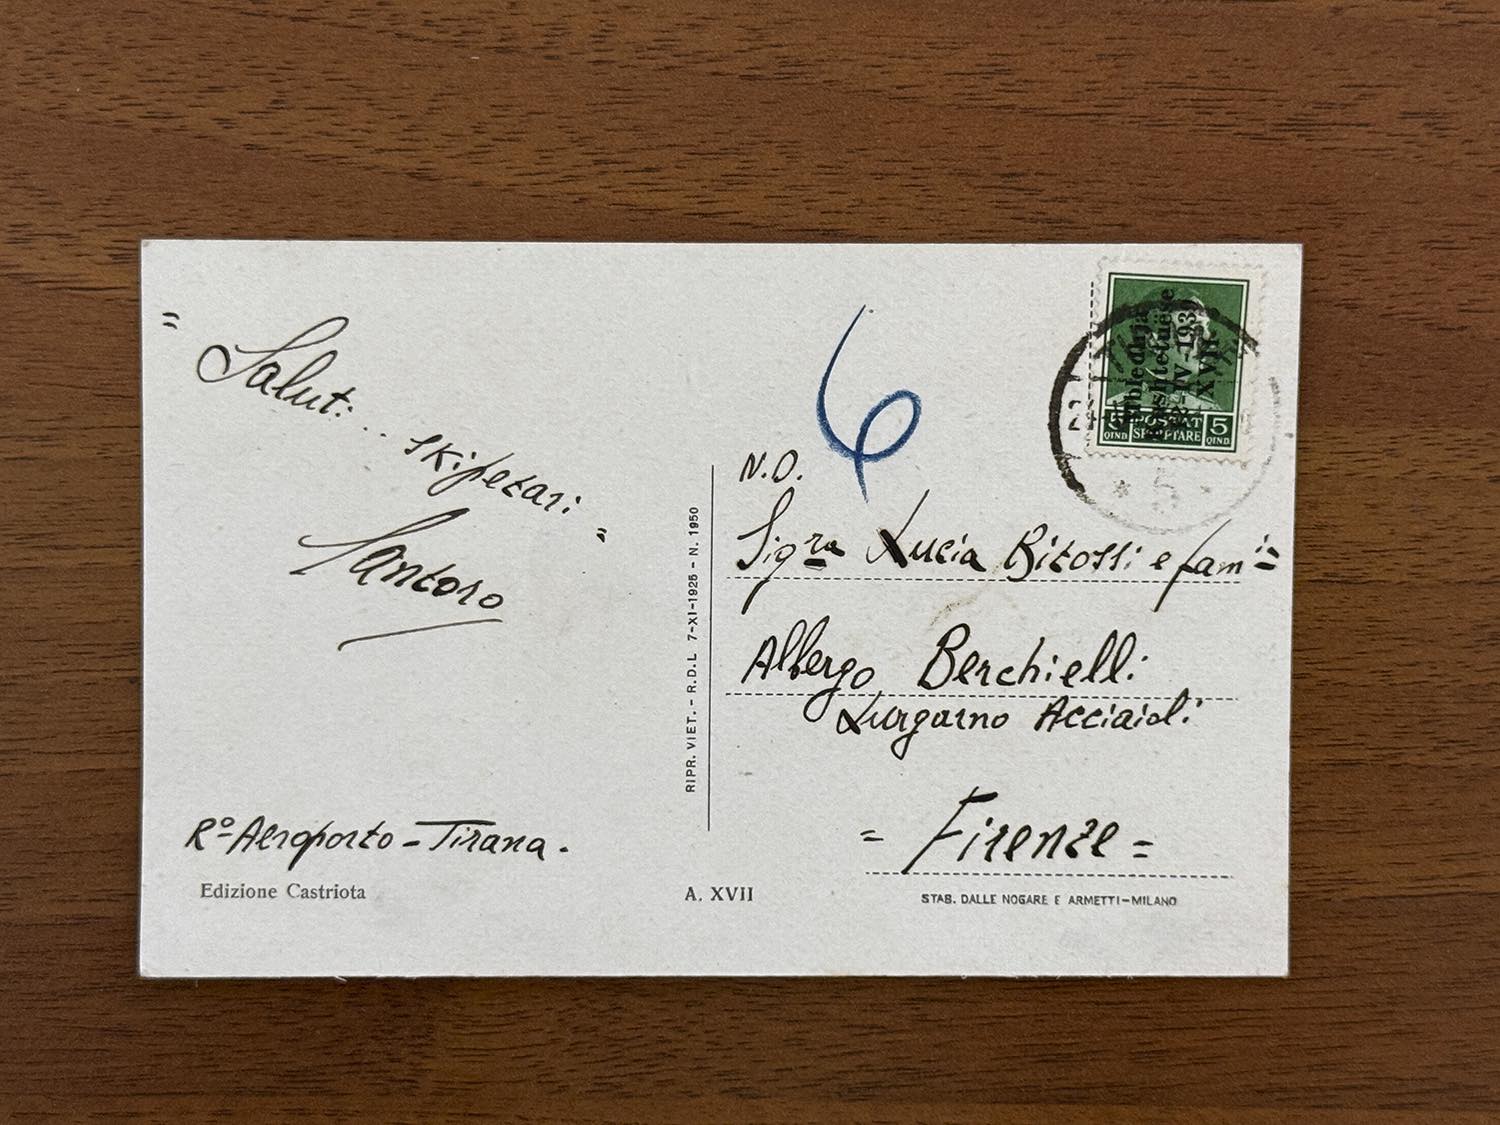 "Saluti..
skipetari"
Santoro
Rº Aeroporto - Tirana.
Edizione Castriota
A. XVII
RIPR. VIET. - R.D.L 7-XI-1925 - N. 1950
6
N.D.
Sigra Lucia Bitossi e fam
Albergo Berchielli
Lungarno Acciaioli
= Firenze =
STAB. DALLE NOGARE E ARMETTI-MILANO
Mbledhja
Kushtetuëse
12-IV-1939
XVII
5 POSTAT 5
QIND SHQIPTARE QIND